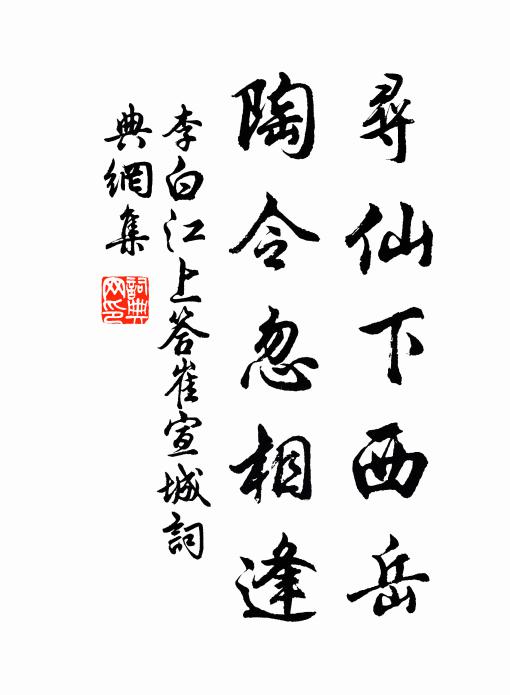 尋仙下西岳
陶令忽相逢
李白江上答崔宣城詞
典網集
詞典网印